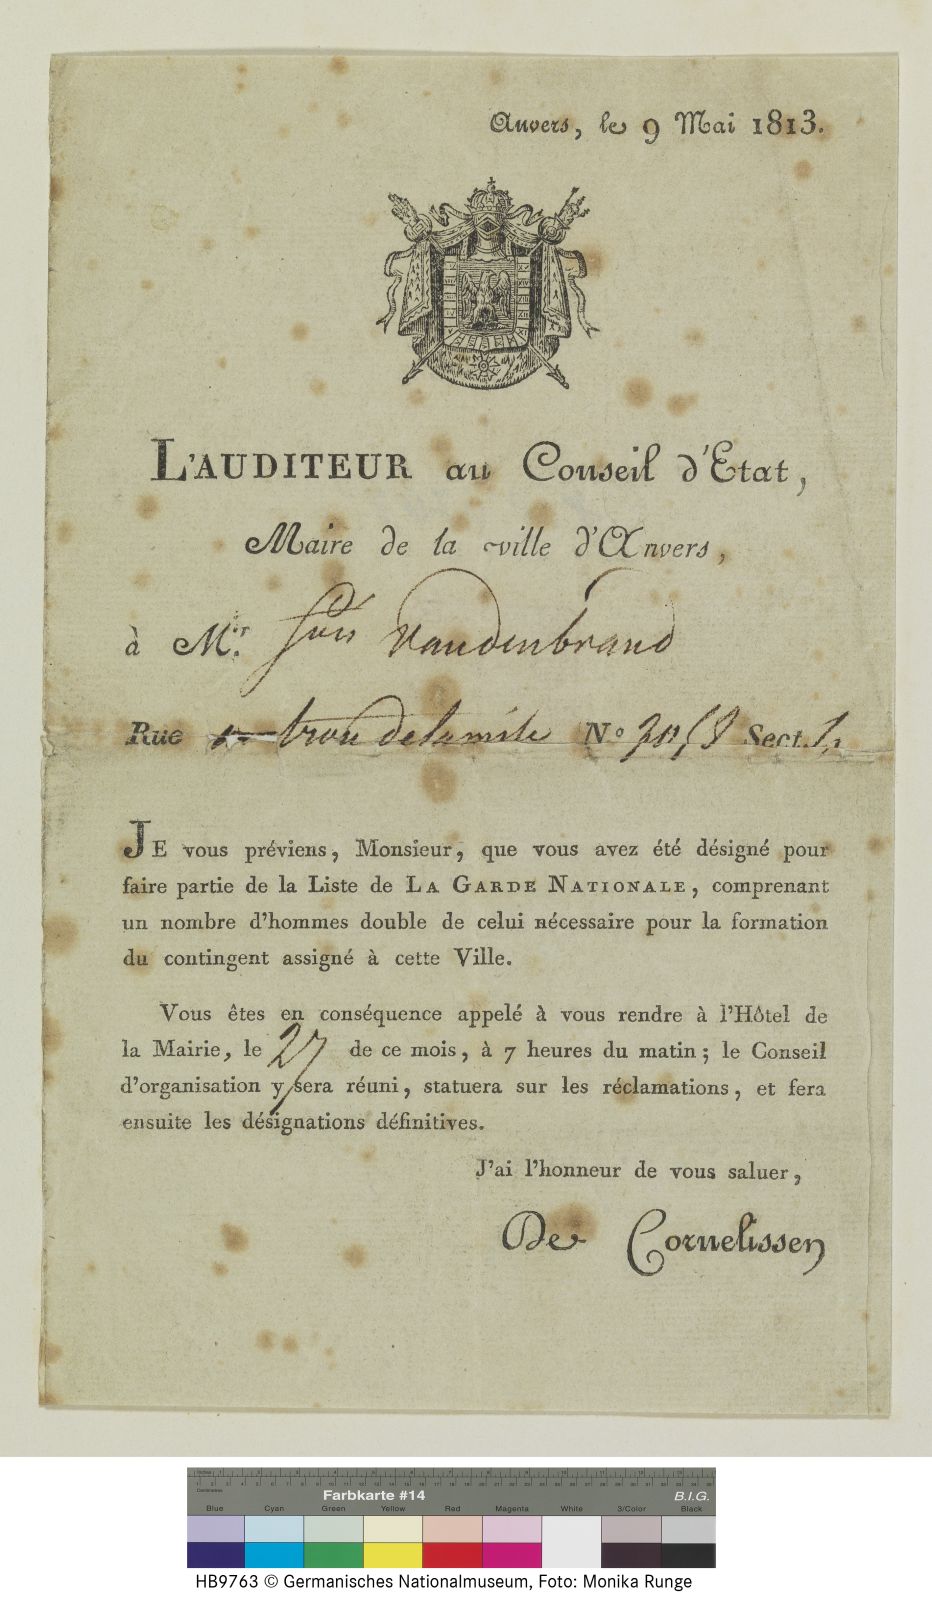 Anvers, le 9 Mai 1813.
L'AUDITEUR au Conseil d'Etat,
Maire de la ville d'Anvers,
à Mr. Vandenbrand
Rue trou de la N° Sect.
JE vous préviens, Monsieur, que vous avez été désigné pour
faire partie de la Liste de LA GARDE NATIONALE, comprenant
un nombre d'hommes double de celui nécessaire pour la formation
du contingent assigné à cette Ville.
Vous êtes en conséquence appelé à vous rendre à l'Hôtel de
la Mairie, le 27 de ce mois, à 7 heures du matin; le Conseil
d'organisation y sera réuni, statuera sur les réclamations, et fera
ensuite les désignations définitives.
J'ai l'honneur de vous saluer,
De Cornelissen
Farbkarte #14 B.I.G.
Blue Cyan Green Yellow Red Magenta White 3/Color Black
HB9763 © Germanisches Nationalmuseum, Foto: Monika Runge